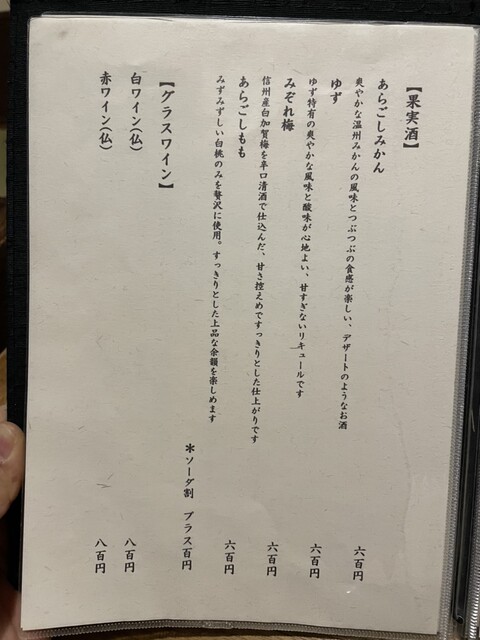 【果実酒】
あらごしみかん
爽やかな温州みかんの風味とつぶつぶの食感が楽しい、デザートのようなお酒
六百円
ゆず
ゆず特有の爽やかな風味と酸味が心地よい、甘すぎないリキュールです
六百円
みぞれ梅
信州産白加賀梅を辛口清酒で仕込んだ、甘さ控えめですっきりとした仕上がりです
六百円
あらごしもも
みずみずしい白桃のみを贅沢に使用。すっきりとした上品な余韻を楽しめます
六百円
＊ソーダ割 プラス百円
【グラスワイン】
白ワイン(仏)
八百円
赤ワイン(仏)
八百円